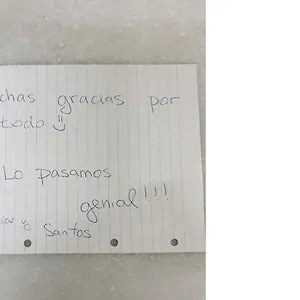 chas gracias por
todo
Lo pasamos
genial!!!
y
Santos